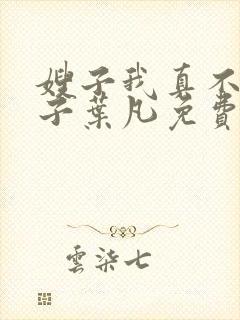 嫂子我真不
子葉凡免費
雲染七